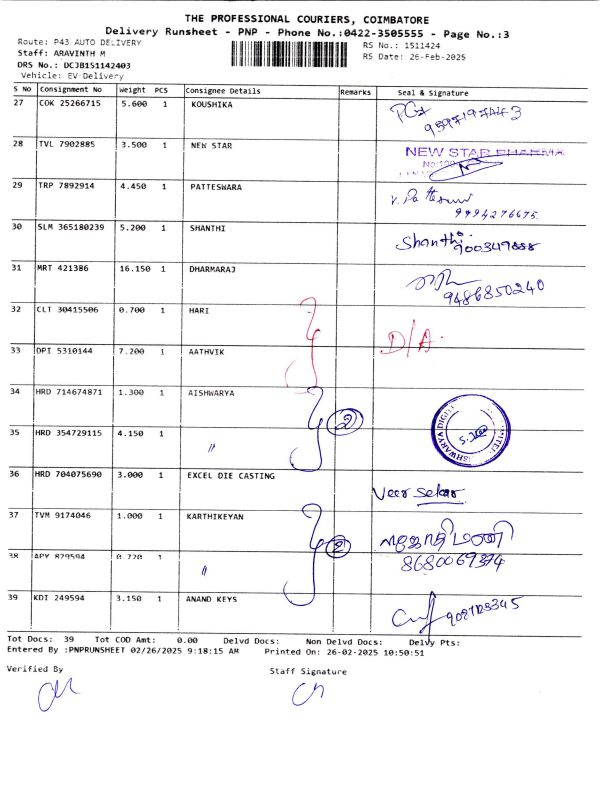 THE PROFESSIONAL COURIERS, COIMBATORE
Delivery Runsheet - PNP - Phone No.:0422-3505555 - Page No.:3
Route: P43 AUTO DELIVERY RS No.: 1511424
Staff: ARAVINTH M RS Date: 26-Feb-2025
DRS No.: DCJB151142403
Vehicle: EV Delivery
S No Consignment No Weight PCS Consignee Details Remarks Seal & Signature
27 COK 25266715 5.600 1 KOUSHIKA
28 TVL 7902885 3.500 1 NEW STAR NEW STAR PHARMA
29 TRP 7892914 4.450 1 PATTESWARA
9994276675
30 SLM 365180239 5.200 1 SHANTHI Shanthi
31 MRT 421386 16.150 1 DHARMARAJ
9486850240
32 CLT 30415506 0.700 1 HARI
D/A
33 DPI 5310144 7.200 1 AATHVIK
34 HRD 714674871 1.300 1 AISHWARYA
2
35 HRD 354729115 4.150 1 "
36 HRD 704075690 3.000 1 EXCEL DIE CASTING
Veer Sekar
37 TVM 9174046 1.000 1 KARTHIKEYAN
2
38 APY 829594 0.720 1 "
39 KDI 249594 3.150 1 ANAND KEYS
Tot Docs: 39 Tot COD Amt: 0.00 Delvd Docs: Non Delvd Docs: Delvy Pts:
Entered By :PNPRUNSHEET 02/26/2025 9:18:15 AM Printed On: 26-02-2025 10:50:51
Verified By Staff Signature